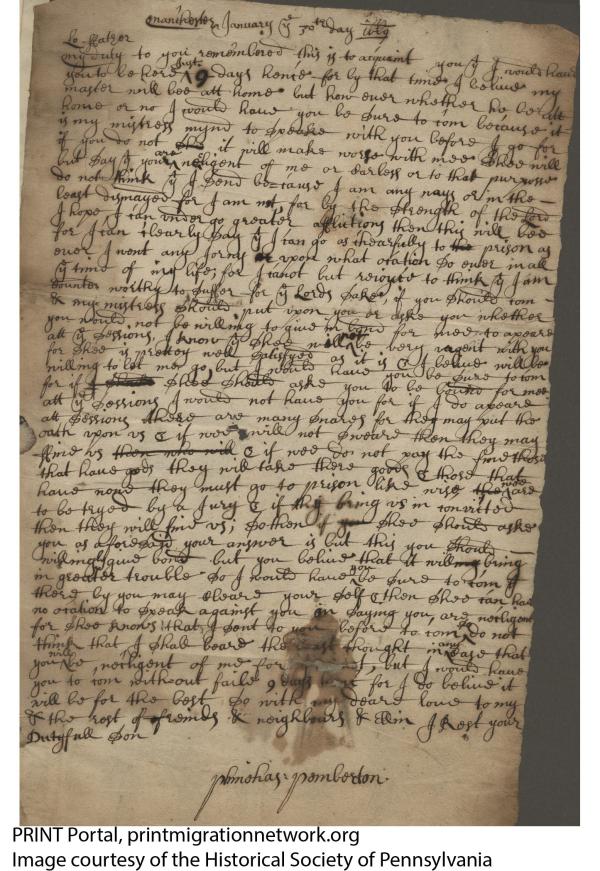 manchester January ye 30th day
Lo: ffather
my duty to you remembred this is to acquaint you yt I would have
you to be here Just 9 days hence for by that time I belive my
master will bee att home but how ever whether he be att
home or no I would have you be sure to com because it
is my mistress mynd to speake with you before I go for
if you do not it will make worse with mee shee will
but say yt your are negligent of me or carless or to that purpose
do not think yt I send because I am any ways or in the
least dismayed for I am not, for by the strength of the lord
I hope I can under go greater afflictions then this will bee
for I can clearly say yt I can go as chearfully to prison as
ever I went any Jorny upon what ocation so ever in all
ye time of my life; for I canot but rejoice to think yt I am
counter worthy to suffer for ye Lords sake, if you should com
& my mistress should put upon you or ask you whether
you would not be willing to give in bond for mee to apeare
att ye sessions, I know yt shee will not be very urgent with you
for shee is prettey well satisfyed as it is & I belive will be
willing to let me go but I would have you be sure to com
for if shee should aske you to be bound for mee
att ye sessions I would not have you for if I do apeare
att sessions there are many snares for they may put the
oath upon us & if wee will not sweare then they may
fine us then who will & if wee do not pay the fine those
that have gods they will take there goods & those that
have none they must go to prison like wise wee are
to be tryed by a Jury & if they bring us in convicted
then they will find us; so then if shee should aske
you as aforesaid your answer is but this you should
willingly give bond but you belive that it will bring
in greater trouble so I would have you be sure to com yt
there by you may cleare your self & then shee can have
no ocation to speak against you in saying you, are necligent
for shee knows that I sent to you before to com, do not
think that I shall beare the least thought in any case that
you will be, necligent of me for, but I would have
you to com without faile 9 days for I do belive it
will be for the best So with my deare love to my
& the rest of freinds & neighbours & Elin I Rest your
Dutyfull son
phinehas: pemberton.
PRINT Portal, printmigrationnetwork.org
Image courtesy of the Historical Society of Pennsylvania